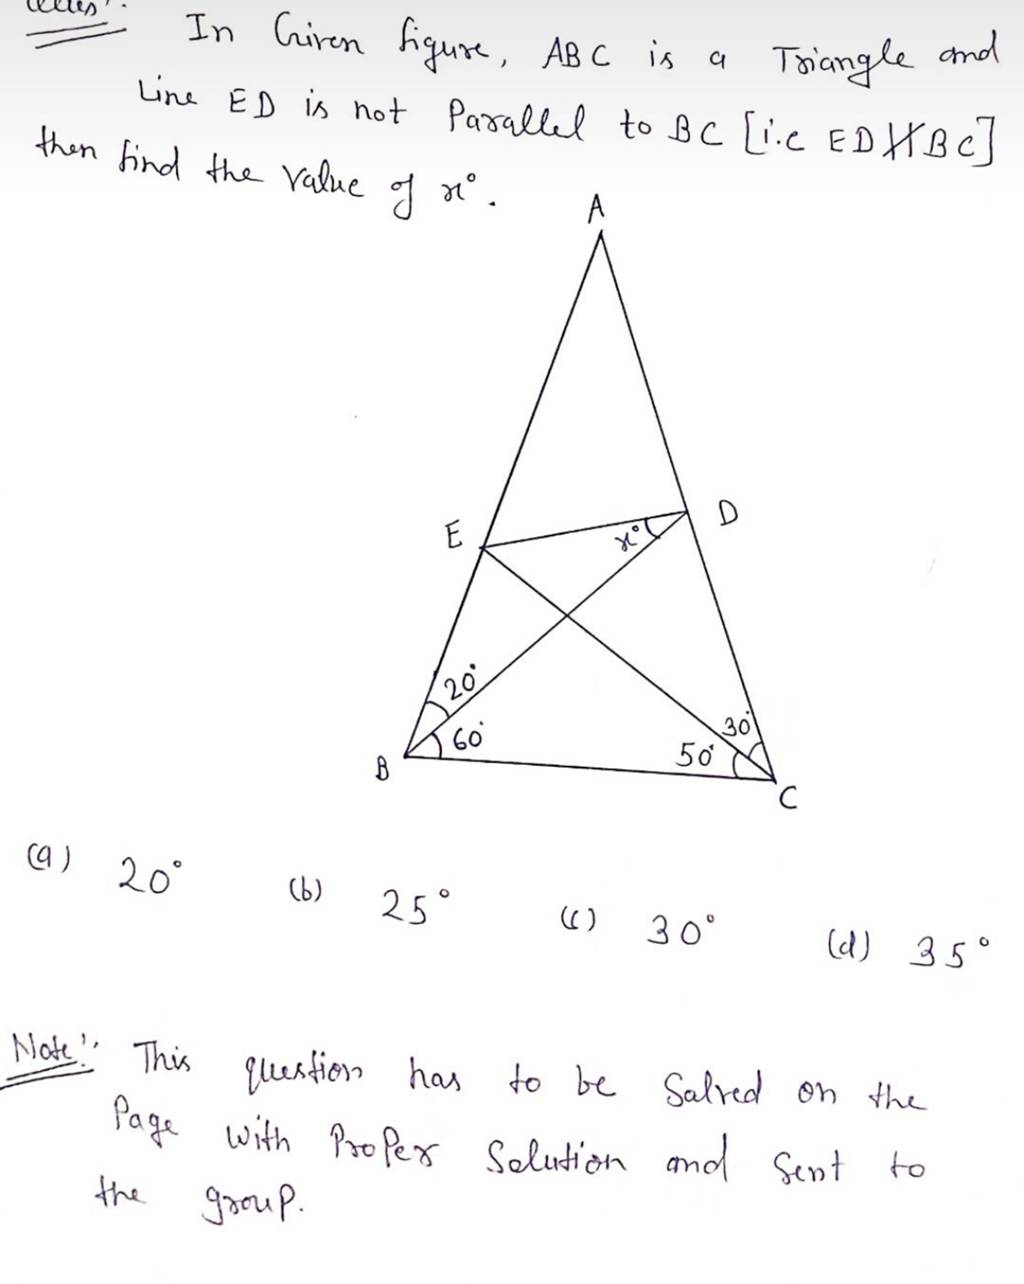 In Given figure, ABC is a Triangle and
Line ED is not Parallel to BC [i.e ED ∦ BC]
then find the value of x°.
A
E
D
x°
20°
60°
30°
50°
B
C
(a) 20° (b) 25° (c) 30° (d) 35°
Note:- This question has to be Salved on the
Page with Proper Solution and Sent to
the group.